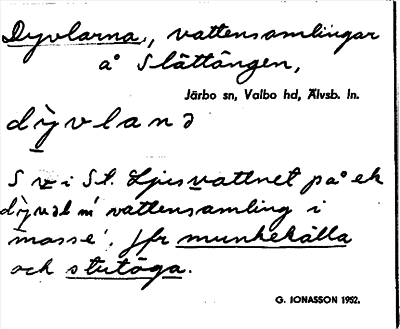 Dyvlarna, vattensamlingar
å Slättängen,
Järbo sn, Valbo hd, Älvsb. ln.
dy� vlanə
S v i St. Ljusvattnet på ek
dẏvəl m' vattensamling i
mosse', jfr munkekälla
och stutöga.
G. JONASSON 1952.